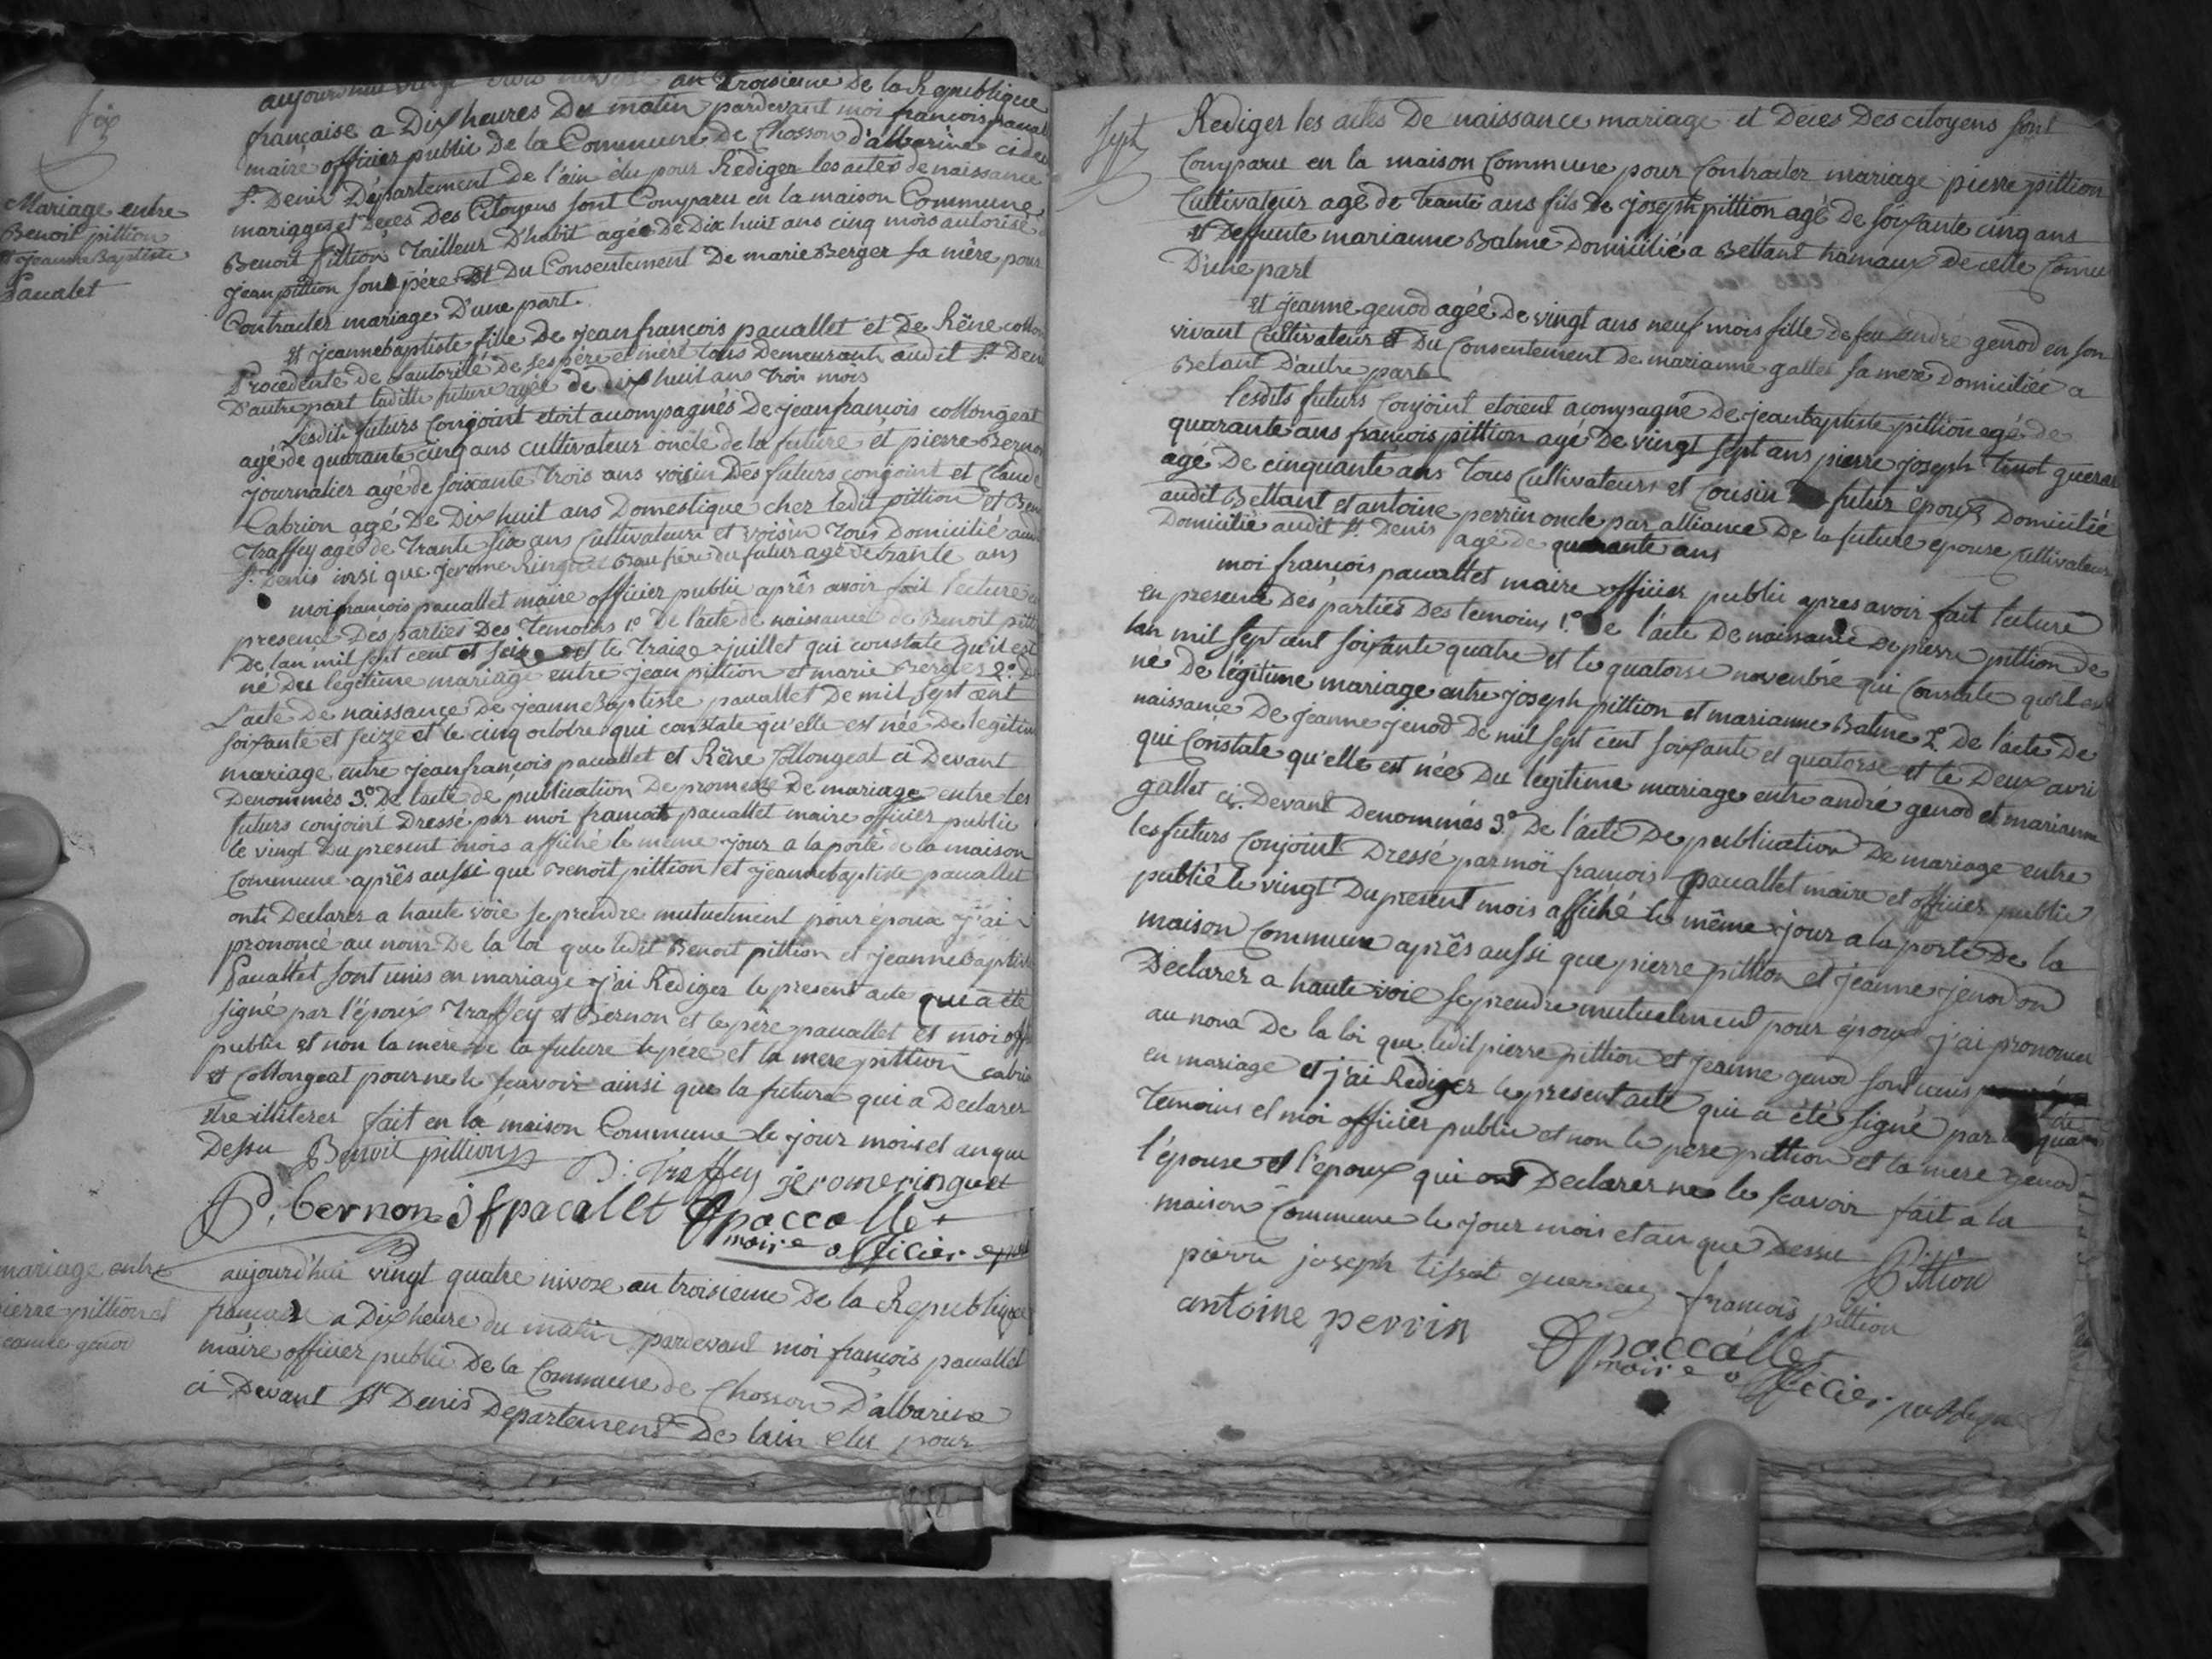 six
Mariage entre
Benoit pittion
et Jeanne Baptiste
Pacualet
aujourdhui vingt trois nivose an Troisieme De la Republique
française a Dix heures Du matin pardevant moi françois
maire officier public De la Commune De Chosson d'albarine
St. Denis Département De l'ain élu pour Rédiger les actes de naissance
mariages et Décès Des Citoyens sont Comparu en la maison Commune
Benoit pittion Tailleur D'habit agée De Dix huit ans cinq mois autorisé
jean pittion son père et Du Consentement De marie Berger sa mère pour
Contracter mariage D'une part
et jeanne baptiste fille De jean françois pacuallet et De Rène
Procedente de l'autorité de ses père et mère tous Demeurant audit St. Den
D'autre part laditte future agée de dix huit ans Trois mois
Lesdits futurs Conjoint etoit acompagnés De jean françois collongeat
agé de quarante cinq ans cultivateur oncle de la future et pierre Bernon
journalier agé de soixante Trois ans voisin Des futurs conjoint et Claude
Cabrion agé De Dix huit ans Domestique chez ledit pittion et
Traffey agé de Trante six ans Cultivateur et voisin Tous Domicilié
St. Denis insi que Jerome Ringuet Beau frère du futur agé de trante ans
moi françois pacuallet maire officier public après avoir fait lecture
presence Des parties Des Temoins 1o. De l'acte de naissance de Benoit
De lan mil sept cent et seize et le Traize juillet qui constate qu'il est
né Du legitime mariage entre jean pittion et marie Berger 2o.
L'acte De naissance De jeanne Baptiste pacuallet De mil sept cent
soixante et seize et le cinq octobre qui constate qu'elle est née De legitime
mariage entre jean françois pacuallet et Rène Collongeat ci Devant
Denommés 3o. De l'acte de publication De promesse De mariage entre les
futurs conjoint Dressé par moi françois pacuallet maire officier public
le vingt Du present mois affiché le même jour a la porte de la maison
Commune après aussi que Benoit pittion et jeanne baptiste pacuallet
onts Declarer a haute voie se prendre mutuelment pour époux j'ai
prononcé au nom De la loi que ledit Benoit pittion et jeanne Baptiste
Pacuallet sont unis en mariage j'ai Rediger le present acte qui a été
signé par l'époux Traffey et Bernon et le père pacuallet et moi
public et non la mère de la future le père et la mere pittion
et Collongeat pour ne le sçavoir ainsi que la future qui a Declarer
etre illiteres fait en la maison Commune le jour mois et an que
Dessu Benoit pittion
B. Traffey jerome ringuet
P. bernon jf pacallet f paccallet
maire officier
mariage entre
pierre pittion et
jeanne genod
aujourd'hui vingt quatre nivose an troisieme De la Republique
française a Dix heure du matin pardevant moi françois pacuallet
maire officier public De la Commune de Chosson D'albarine
ci Devant St Denis Departement De lain elu pour
Sept
Rediger les actes De naissance mariage et Décès Des citoyens sont
Comparu en la maison Commune pour Contracter mariage pierre pittion
Cultivateur agé de Trante ans fils De joseph pittion agé De soixante cinq ans
et Deffunte marianne Balme Domicilié a Bettant hamaux de cette
D'une part
et jeanne genod agée De vingt ans neuf mois fille De feu andré genod en son
vivant Cultivateur et Du Consentement De marianne gallet sa mere Domiciliée a
Betant D'autre part
Lesdits futurs Conjoint etoient acompagné De jean baptiste pittion agé de
quarante ans françois pittion agé De vingt sept ans pierre joseph
agé De cinquante ans Tous Cultivateurs et Cousin futur époux Domicilié
audit Bettant et antoine perrin oncle par alliance De la future epouse Cultivateur
Domicilié audit St. Denis agé De quarante ans
moi françois pacuallet maire officier public apres avoir fait lecture
en presence Des parties Des temoins 1o. De l'acte De naissance De pierre pittion De
lan mil sept cent soixante quatre et le quatorse novembre qui Constate qu'il est
né De légitime mariage entre joseph pittion et marianne Balme 2o. De l'acte De
naissance De jeanne jenod De mil sept cent soixante et quatorse et le Deux avri
qui Constate qu'elle est née Du legitime mariage entre andré genod et marianne
gallet ci Devant Denommés 3o. De l'acte De publication De mariage entre
les futurs Conjoint Dressé par moi françois Pacuallet maire et officier public
publié le vingt Du present mois affiché le même jour a la porte De la
maison Commune après aussi que pierre pittion et jeanne jenod on
Declarer a haute voie se prendre mutuelment pour époux j'ai prononcer
au nom De la loi que ledit pierre pittion et jeanne genod sont unis
en mariage et j'ai Rediger le present acte qui a été signé par
Temoins et moi officier public et non le pere pittion et la mere genod
l'épouse et l'époux qui ont Declarer ne le scavoir fait a la
maison Commune le jour mois et an que Dessu
Pittion
pierre joseph françois pittion
antoine perrin
f paccallet
maire officier publique